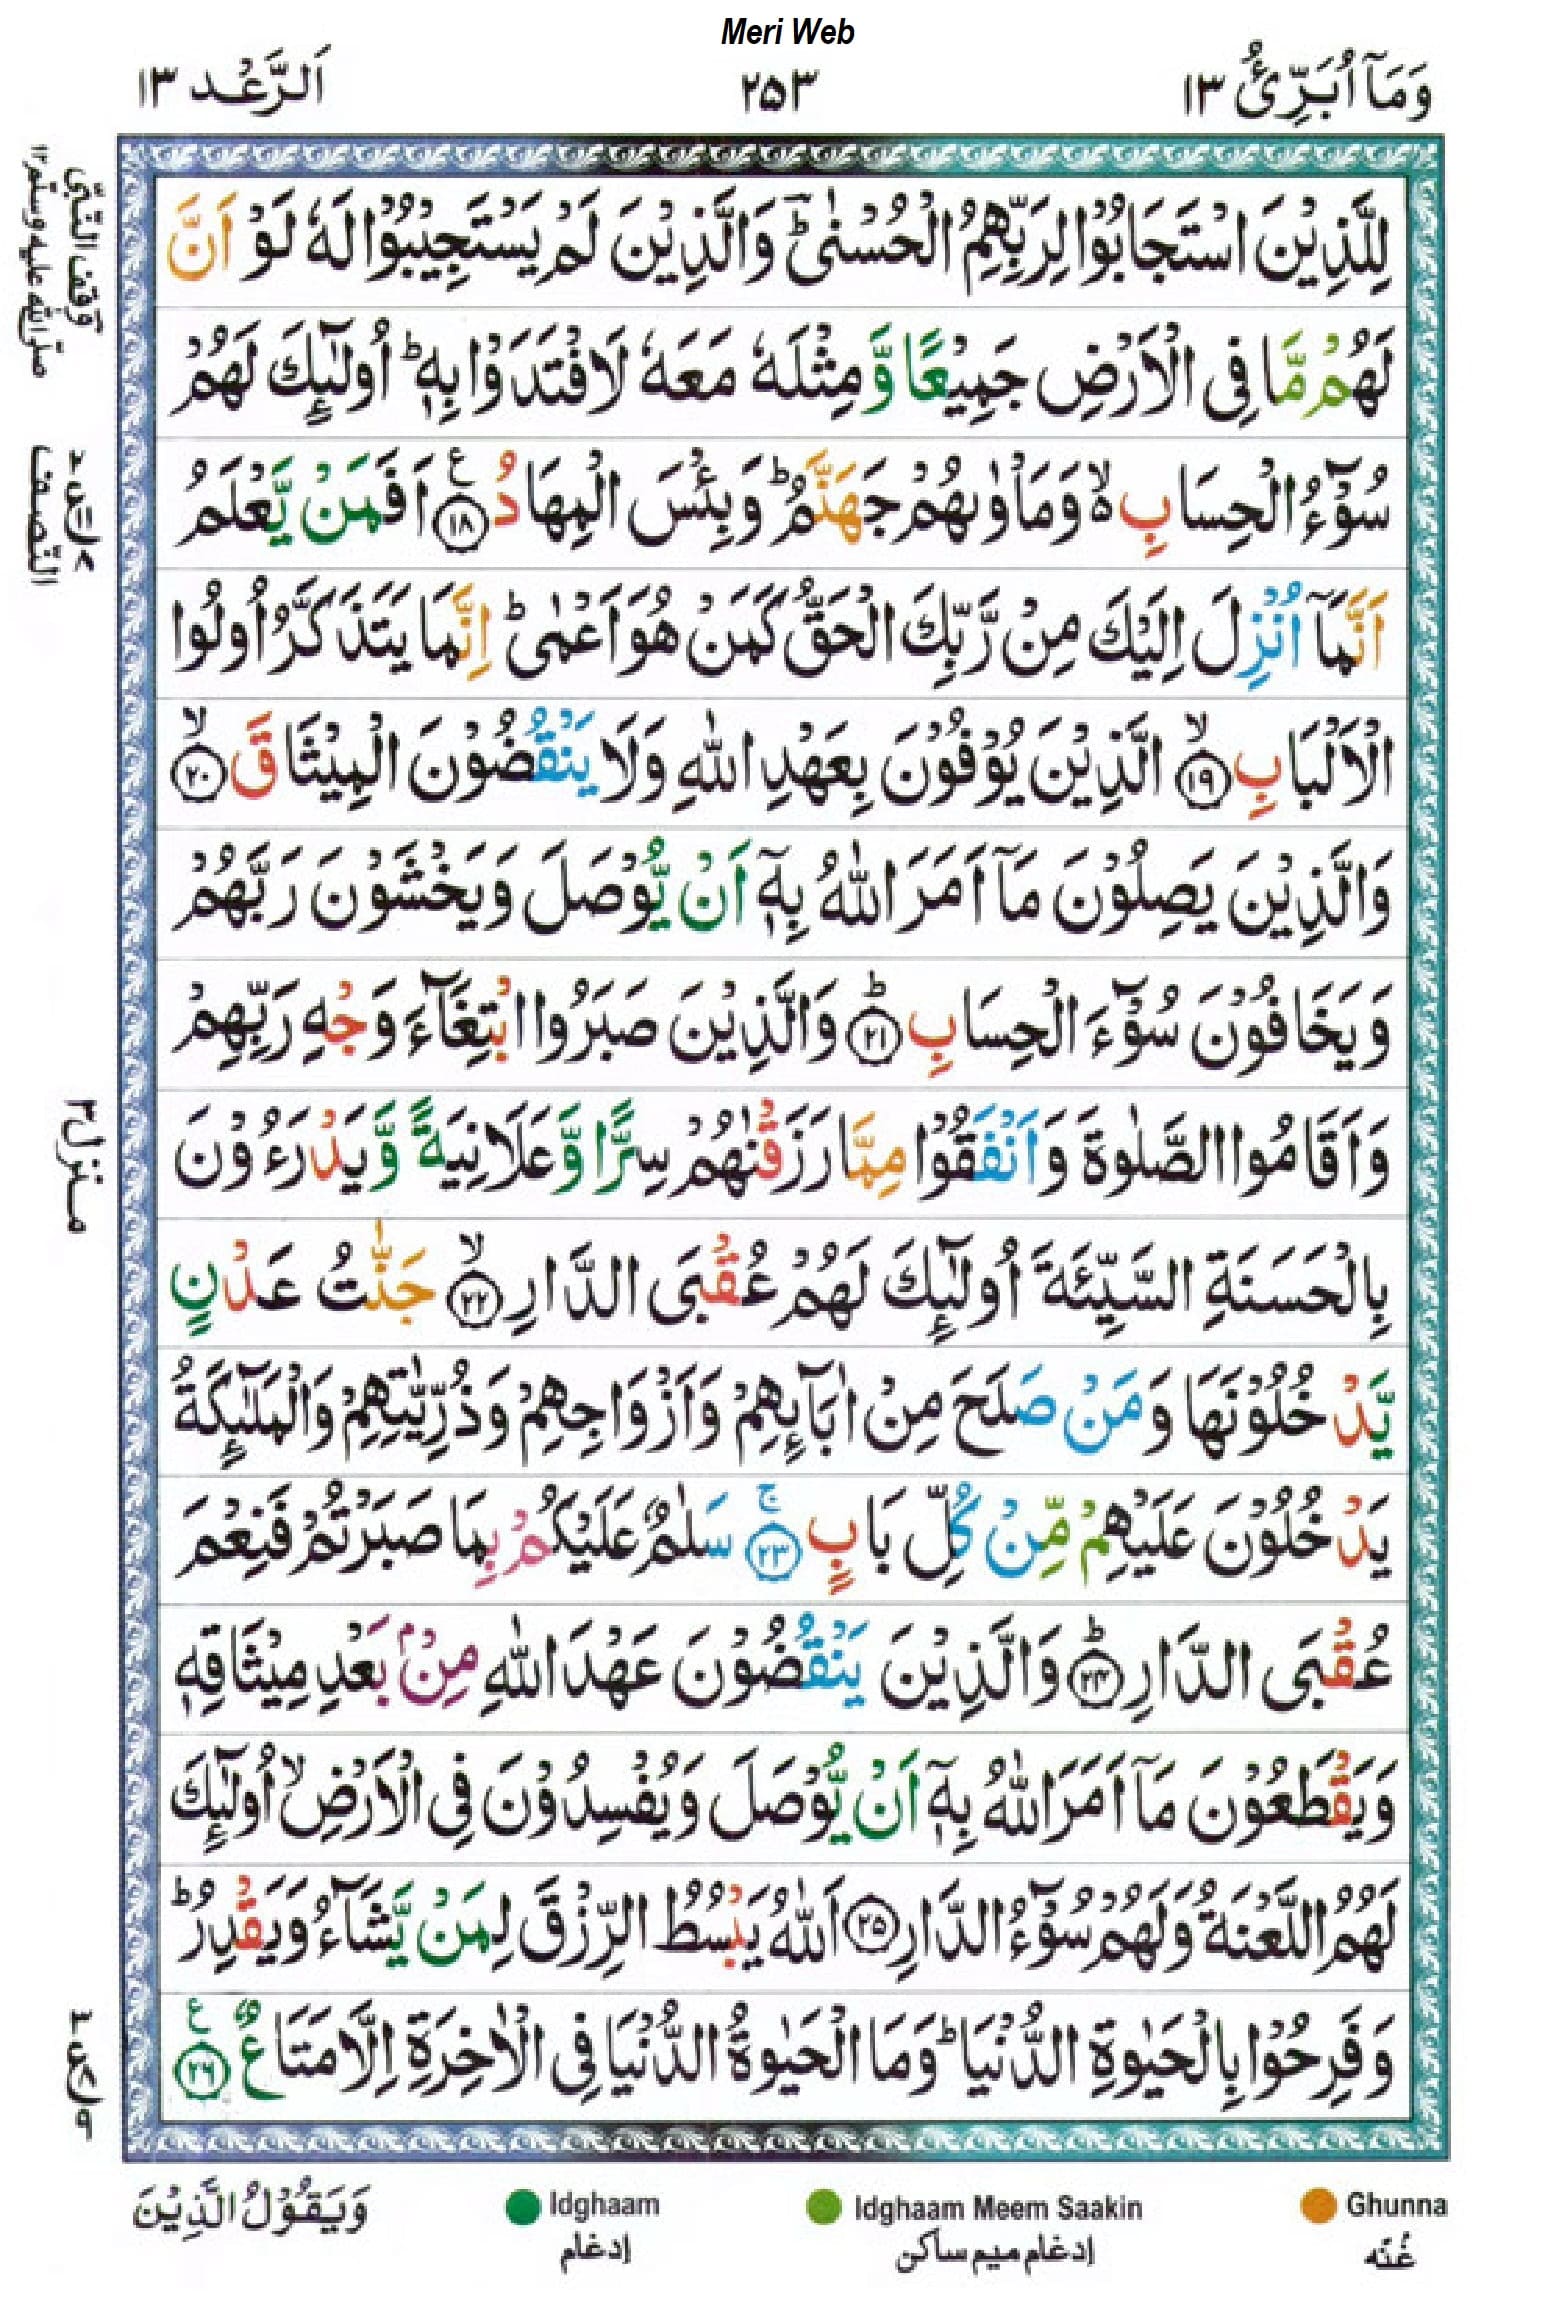 Meri Web
وَمَآ اُبَرِّئُ ١٣
٢٥٣
اَلرَّعْد ١٣
لِلَّذِيْنَ اسْتَجَابُوْا لِرَبِّهِمُ الْحُسْنٰىؕ وَالَّذِيْنَ لَمْ يَسْتَجِيْبُوْا لَهٗ لَوْ اَنَّ
لَهُمْ مَّا فِى الْاَرْضِ جَمِيْعًا وَّمِثْلَهٗ مَعَهٗ لَافْتَدَوْا بِهٖؕ اُولٰٓئِكَ لَهُمْ
سُوْٓءُ الْحِسَابِ ۙ۬ وَمَاْوٰىهُمْ جَهَنَّمُؕ وَبِئْسَ الْمِهَادُ ﴿١٨﴾ اَفَمَنْ يَّعْلَمُ
اَنَّمَآ اُنْزِلَ اِلَيْكَ مِنْ رَّبِّكَ الْحَقُّ كَمَنْ هُوَ اَعْمٰىؕ اِنَّمَا يَتَذَكَّرُ اُولُوا
الْاَلْبَابِۙ ﴿١٩﴾ الَّذِيْنَ يُوْفُوْنَ بِعَهْدِ اللّٰهِ وَلَا يَنْقُضُوْنَ الْمِيْثَاقَۙ ﴿٢٠﴾
وَالَّذِيْنَ يَصِلُوْنَ مَآ اَمَرَ اللّٰهُ بِهٖٓ اَنْ يُّوْصَلَ وَيَخْشَوْنَ رَبَّهُمْ
وَيَخَافُوْنَ سُوْٓءَ الْحِسَابِؕ ﴿٢١﴾ وَالَّذِيْنَ صَبَرُوا ابْتِغَآءَ وَجْهِ رَبِّهِمْ
وَاَقَامُوا الصَّلٰوةَ وَاَنْفَقُوْا مِمَّا رَزَقْنٰهُمْ سِرًّا وَّعَلَانِيَةً وَّيَدْرَءُوْنَ
بِالْحَسَنَةِ السَّيِّئَةَ اُولٰٓئِكَ لَهُمْ عُقْبَى الدَّارِۙ ﴿٢٢﴾ جَنّٰتُ عَدْنٍ
يَّدْخُلُوْنَهَا وَمَنْ صَلَحَ مِنْ اٰبَآئِهِمْ وَاَزْوَاجِهِمْ وَذُرِّيّٰتِهِمْ وَالْمَلٰٓئِكَةُ
يَدْخُلُوْنَ عَلَيْهِمْ مِّنْ كُلِّ بَابٍۚ ﴿٢٣﴾ سَلٰمٌ عَلَيْكُمْ بِمَا صَبَرْتُمْ فَنِعْمَ
عُقْبَى الدَّارِؕ ﴿٢٤﴾ وَالَّذِيْنَ يَنْقُضُوْنَ عَهْدَ اللّٰهِ مِنْۢ بَعْدِ مِيْثَاقِهٖ
وَيَقْطَعُوْنَ مَآ اَمَرَ اللّٰهُ بِهٖٓ اَنْ يُّوْصَلَ وَيُفْسِدُوْنَ فِى الْاَرْضِۙ اُولٰٓئِكَ
لَهُمُ اللَّعْنَةُ وَلَهُمْ سُوْٓءُ الدَّارِ ﴿٢٥﴾ اَللّٰهُ يَبْسُطُ الرِّزْقَ لِمَنْ يَّشَآءُ وَيَقْدِرُؕ
وَفَرِحُوْا بِالْحَيٰوةِ الدُّنْيَاؕ وَمَا الْحَيٰوةُ الدُّنْيَا فِى الْاٰخِرَةِ اِلَّا مَتَاعٌ ﴿٢٦﴾
وقف النّبى
صلى الله عليه وسلم ١٢
النّصف
منزل ٣
وَيَقُوْلُ الَّذِيْنَ
Idghaam
إدغام
Idghaam Meem Saakin
إدغام ميم ساكن
Ghunna
غُنّه